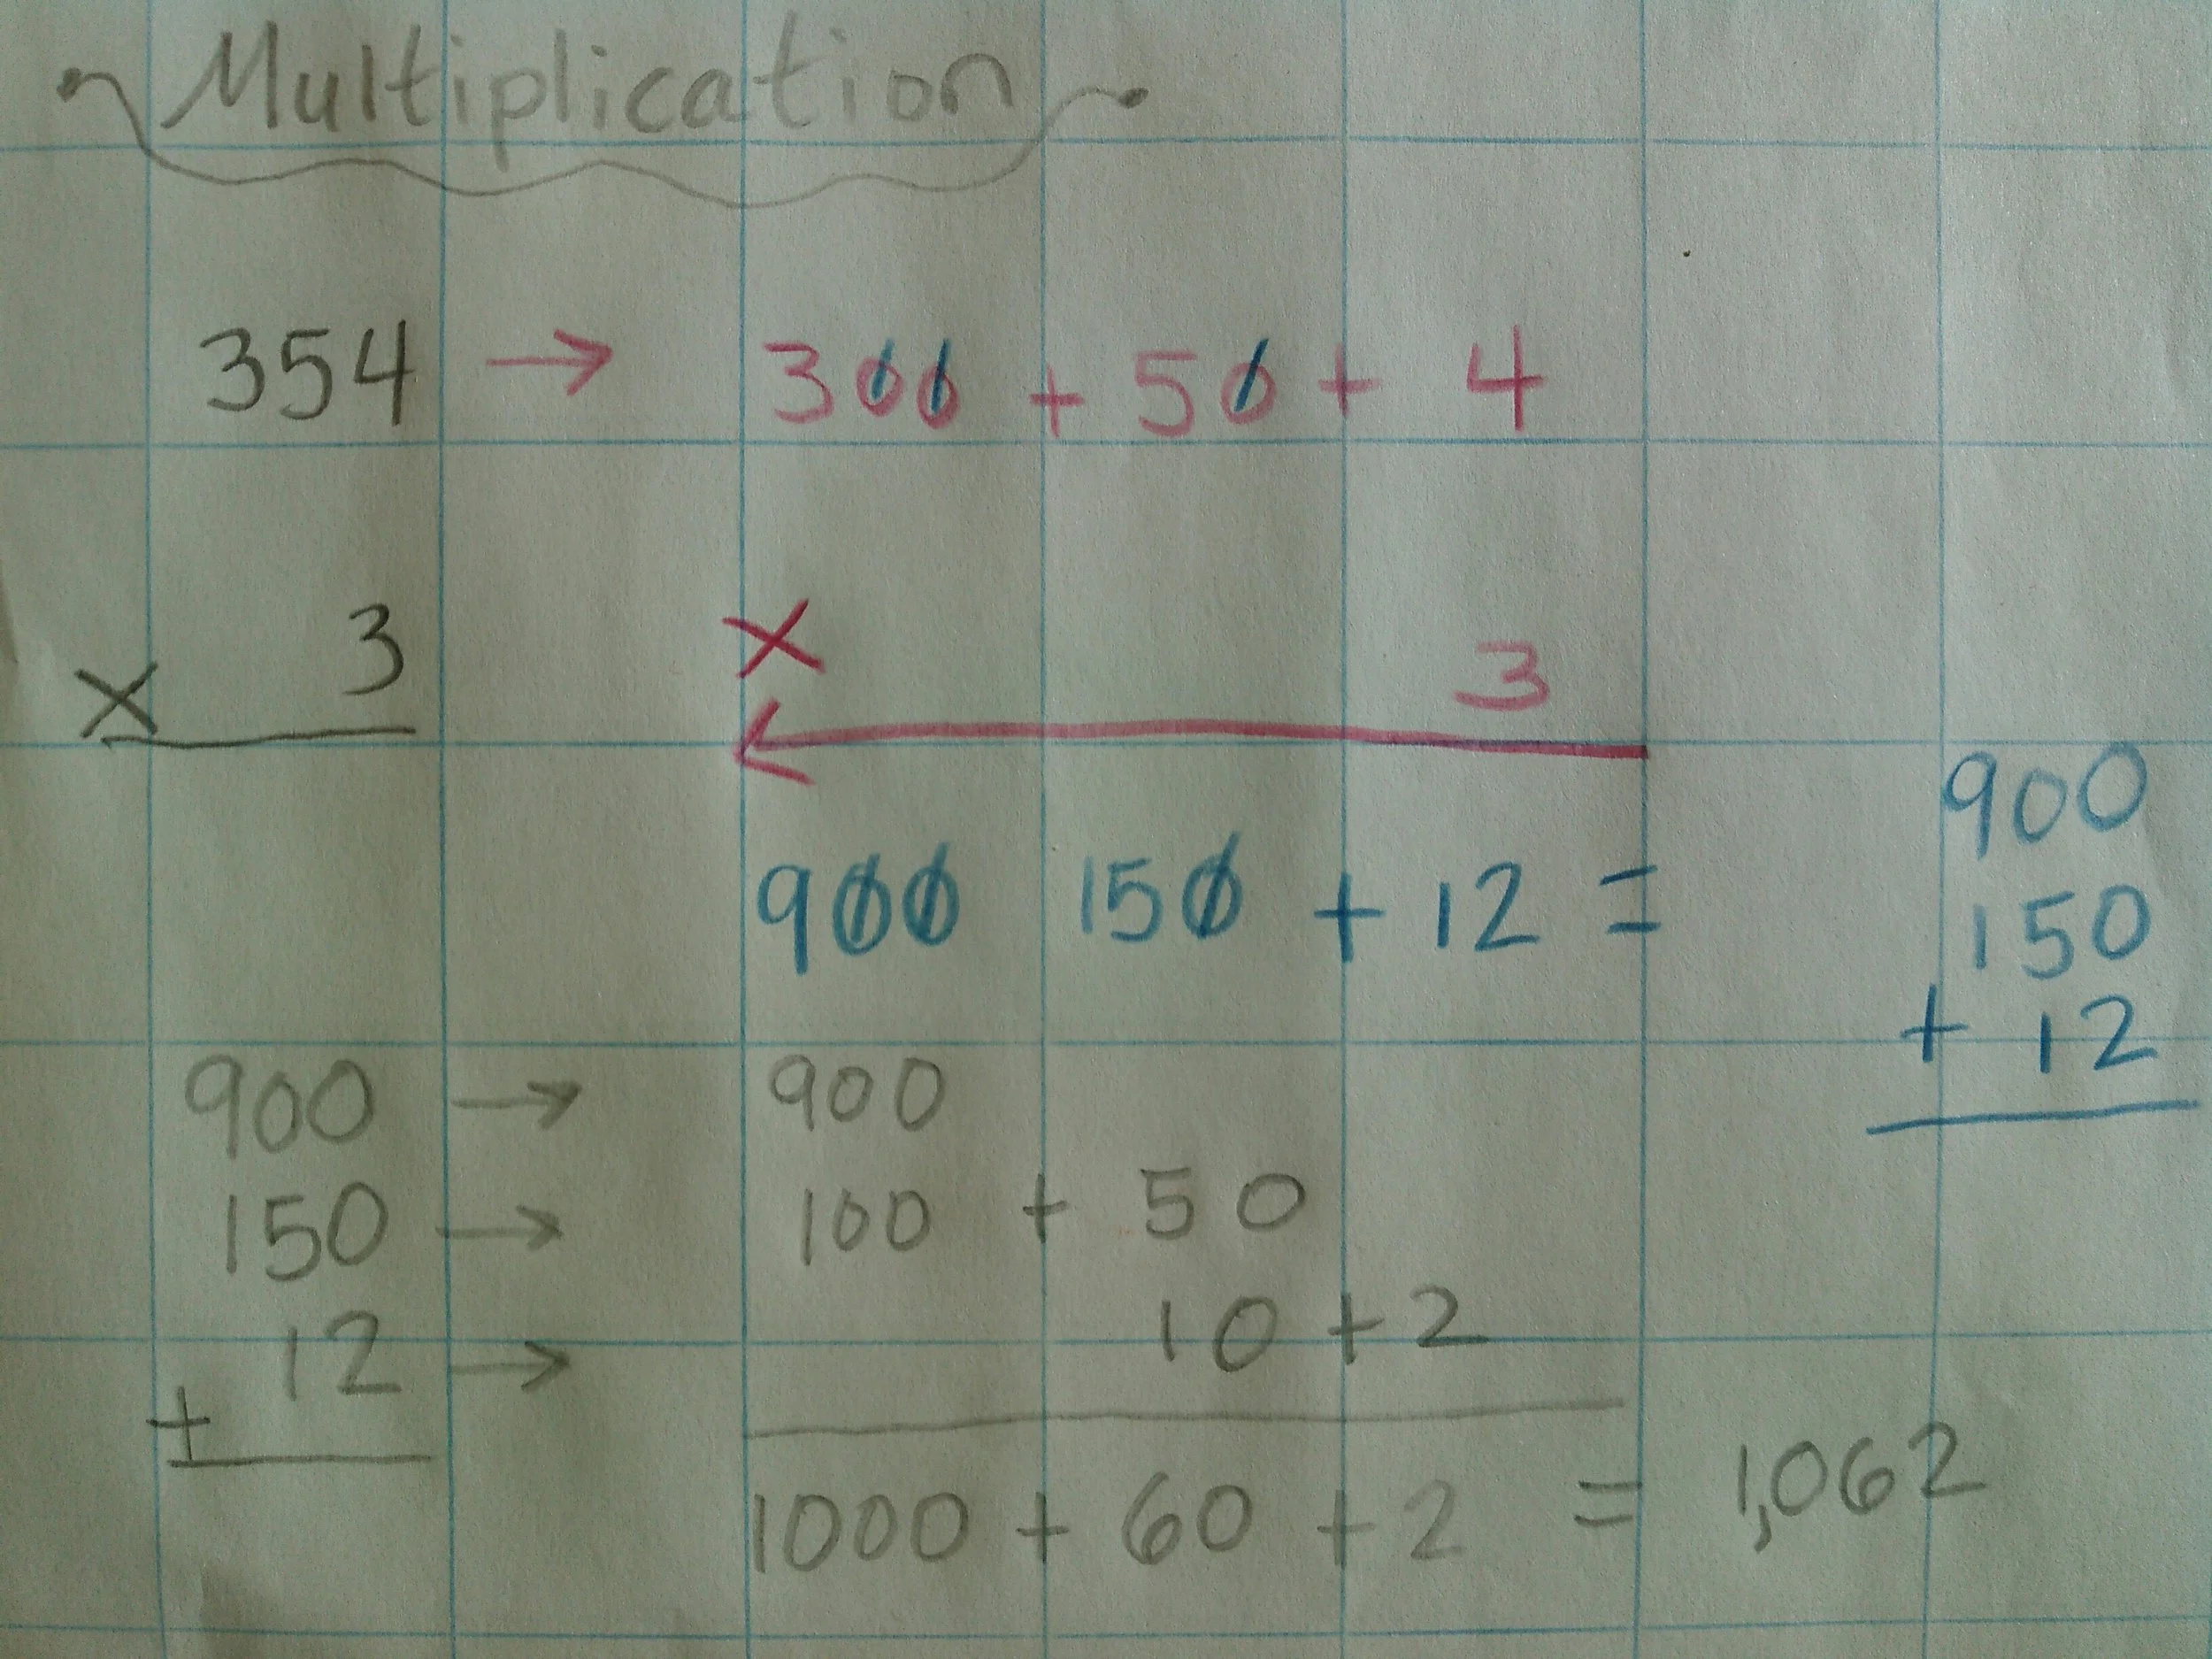 Multiplication
354 → 300 + 50 + 4
x 3 x 3
900 150 + 12 =
900
150
+ 12
900 → 900
150 → 100 + 50
+ 12 → 10 + 2
1000 + 60 + 2 = 1,062